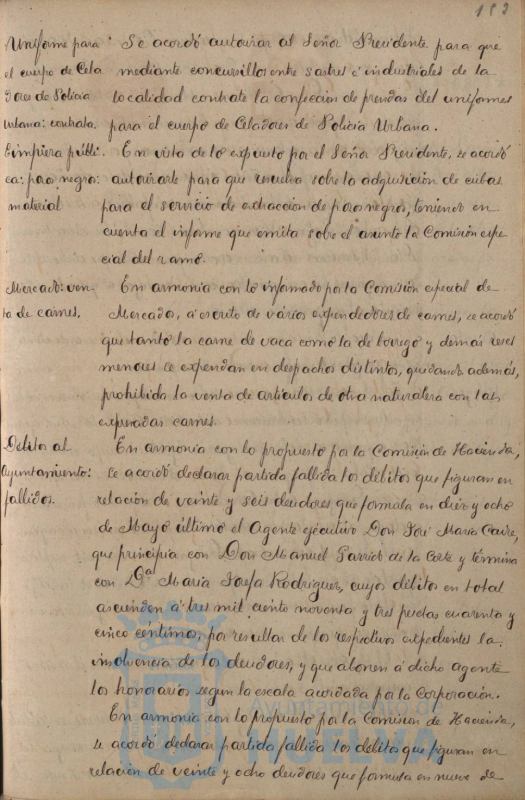 183
Uniforme para
el cuerpo de Cela
dores de Policia
Urbana: contrata.
Se acordó autorizar al Señor Presidente para que
mediante concursillos entre sastres é industriales de la
localidad contrate la confeccion de prendas del uniformes
para el cuerpo de Celadores de Policia Urbana.
Limpieza públi
ca: pozos negros:
material
En vista de lo expuesto por el Señor Presidente, se acordó
autorizarle para que resuelva sobre la adquisicion de cubas
para el servicio de extraccion de pozos negros, teniendo en
cuenta el informe que emita sobre el asunto la Comisión espe
cial del ramo.
Mercado: ven-
ta de carnes.
En armonia con lo informado por la Comisión especial de
Mercados, á escrito de varios expendedores de carnes, se acordó
que tanto la carne de vaca como la de borrego y demás reses
menores se expendan en despachos distintos, quedando además,
prohibida la venta de artículos de otra naturaleza con las
expresadas carnes.
Débitos al
Ayuntamiento:
fallidos.
En armonia con lo propuesto por la Comisión de Hacienda,
se acordó declarar partida fallida los débitos que figuran en
relación de veinte y seis deudores que formula en diez y ocho
de Mayo último el Agente ejecutivo Don José María
que principia con Don Manuel Garrido de la Corte y términa
con Dª María Josefa Rodriguez, cuyos débitos en total
ascienden á tres mil ciento noventa y tres pesetas cuarenta y
cinco céntimos, por resultar de los respectivos expedientes la
insolvencia de los deudores, y que abonen á dicho agente
los honorarios segun la escala acordada por la Corporación.
En armonia con lo propuesto por la Comision de Hacienda,
se acordó declarar partida fallida los débitos que figuran en
relación de veinte y ocho deudores que formula en nueve de
Ayuntamiento de
HUELVA